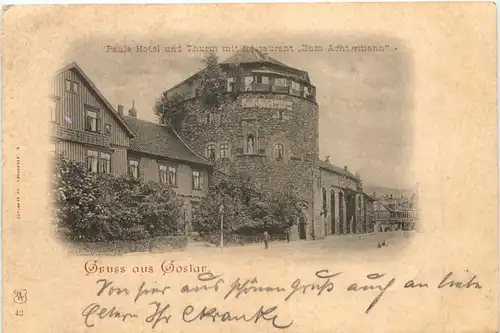 Pauls Hotel und Thurm mit Restaurant „Zum Achtermann“.
Gruss aus Goslar.
Von hier aus schönen gruß auch an liebe
Eltern Ihr
42